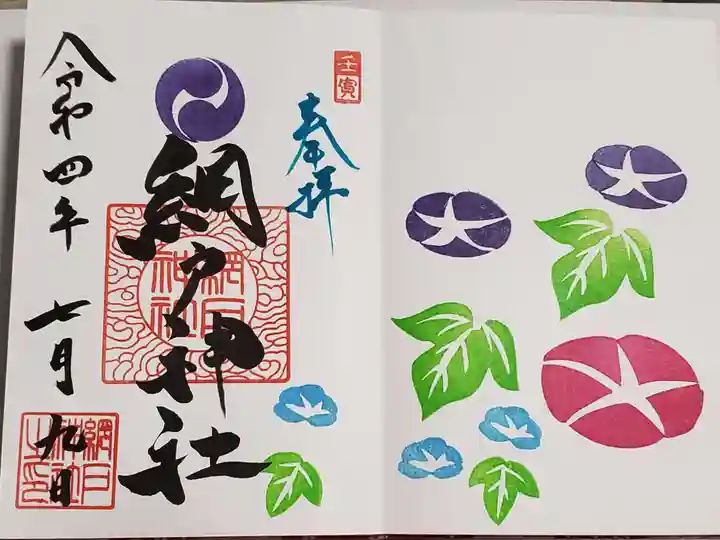 壬寅
奉拝
網戸神社
網戸
神社
令和四年 七月 九日
網戸
神社
之印